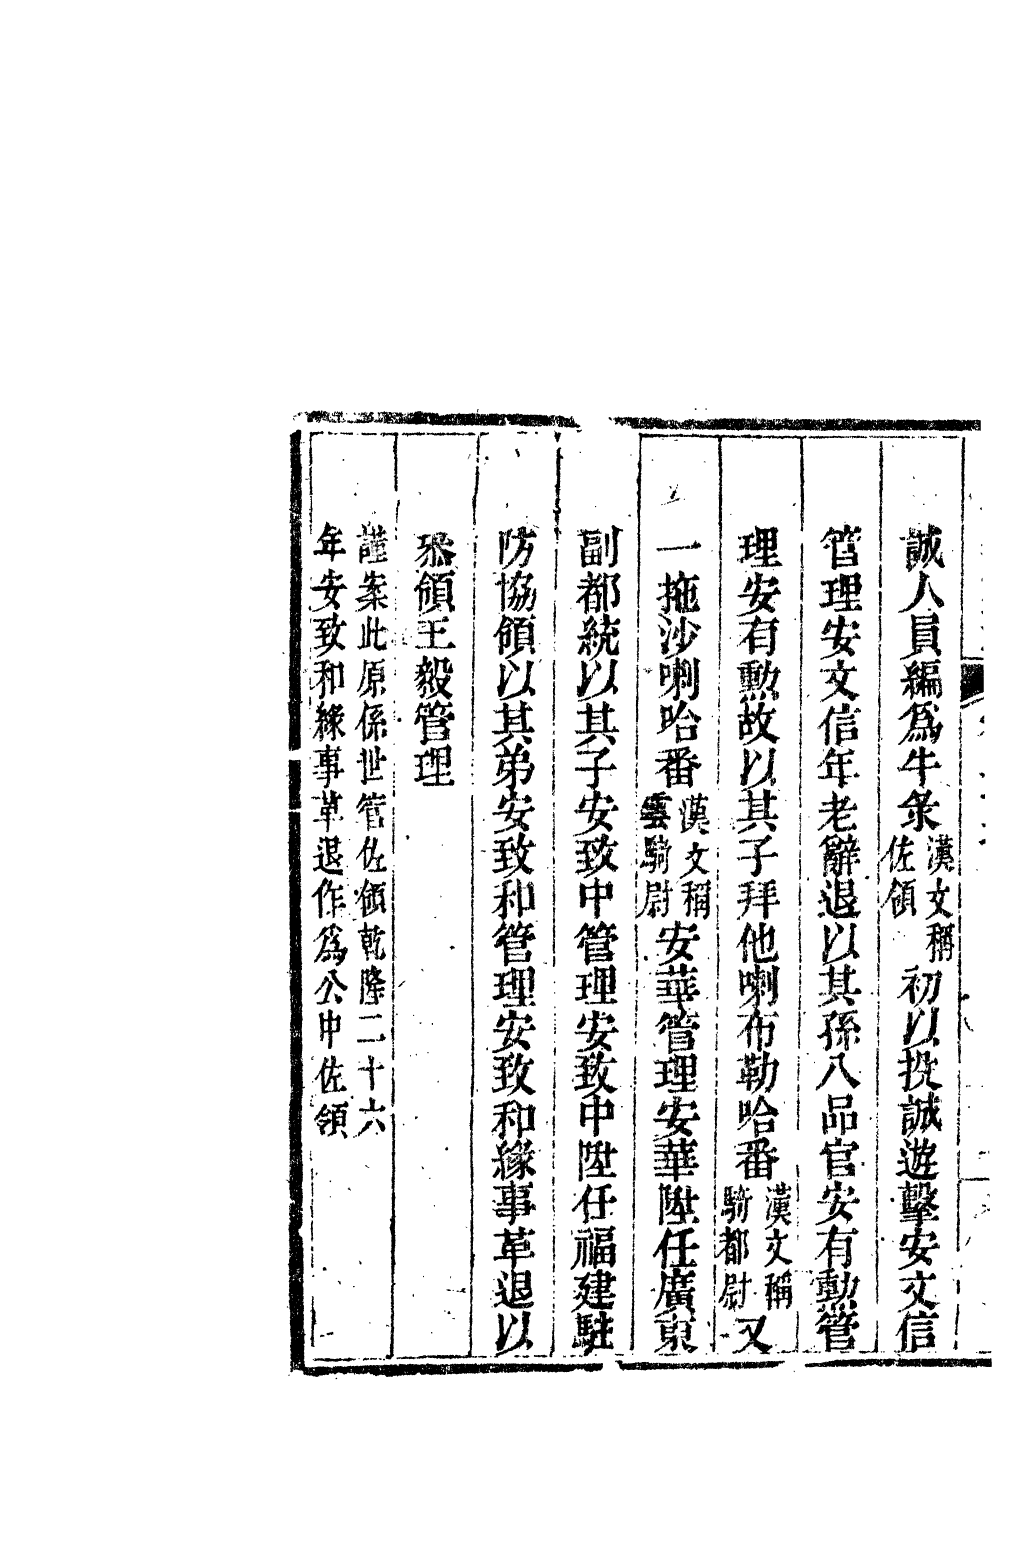 誠人員編為牛彔漢文稱佐領初以投誠遊擊安文信
管理安文信年老辭退以其孫八品官安有勳管
理安有勳故以其子拜他喇布勒哈番漢文稱騎都尉又
一拖沙喇哈番漢文稱雲騎尉安華管理安華陞任廣東
副都統以其子安致中管理安致中陞任福建駐
防協領以其弟安致和管理安致和緣事革退以
叅領王毅管理
謹案此原係世管佐領乾隆二十六
年安致和緣事革退作為公中佐領